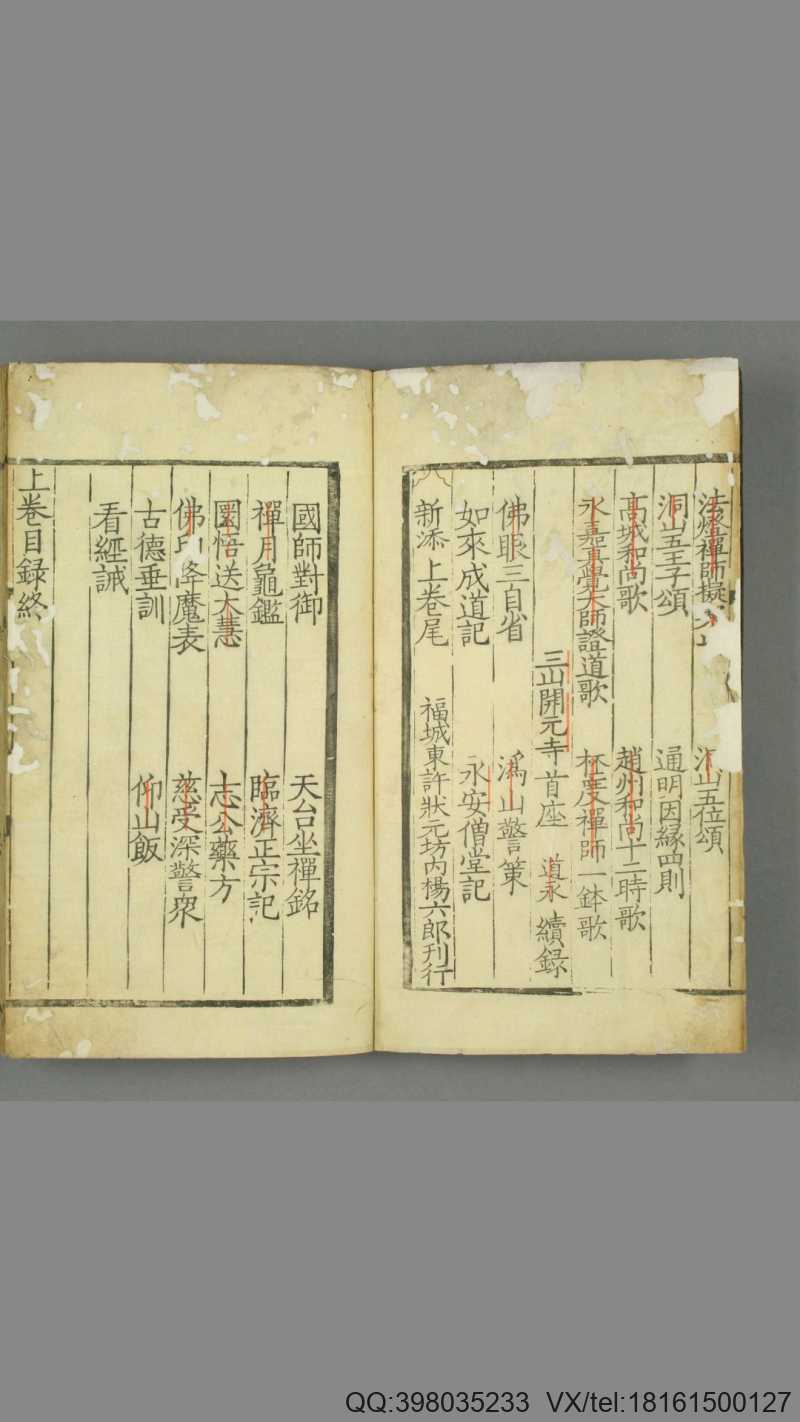 法燈禪師擬 洞山五位頌
洞山五王子頌 通明因緣四則
高城和尚歌 趙州和尚十二時歌
永嘉真覺大師證道歌 杯度禪師一鉢歌
三山開元寺首座 道永 續錄
佛眼三自省 溈山警策
如來成道記 永安僧堂記
新添上卷尾 福城東許狀元坊內楊六郎刊行
國師對御 天台坐禪銘
禪月龜鑑 臨濟正宗記
圜悟送大慧 志公藥方
佛印降魔表 慈受深警眾
古德垂訓 仰山飯
看經誡
上卷目録終
QQ:398035233 VX/tel:18161500127